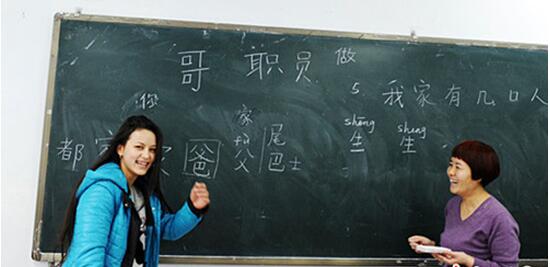 哥 职员 做
5. 我家有几口人
你 家
shēng sheng
生 生
fù
都 爸 父 尾
巴士